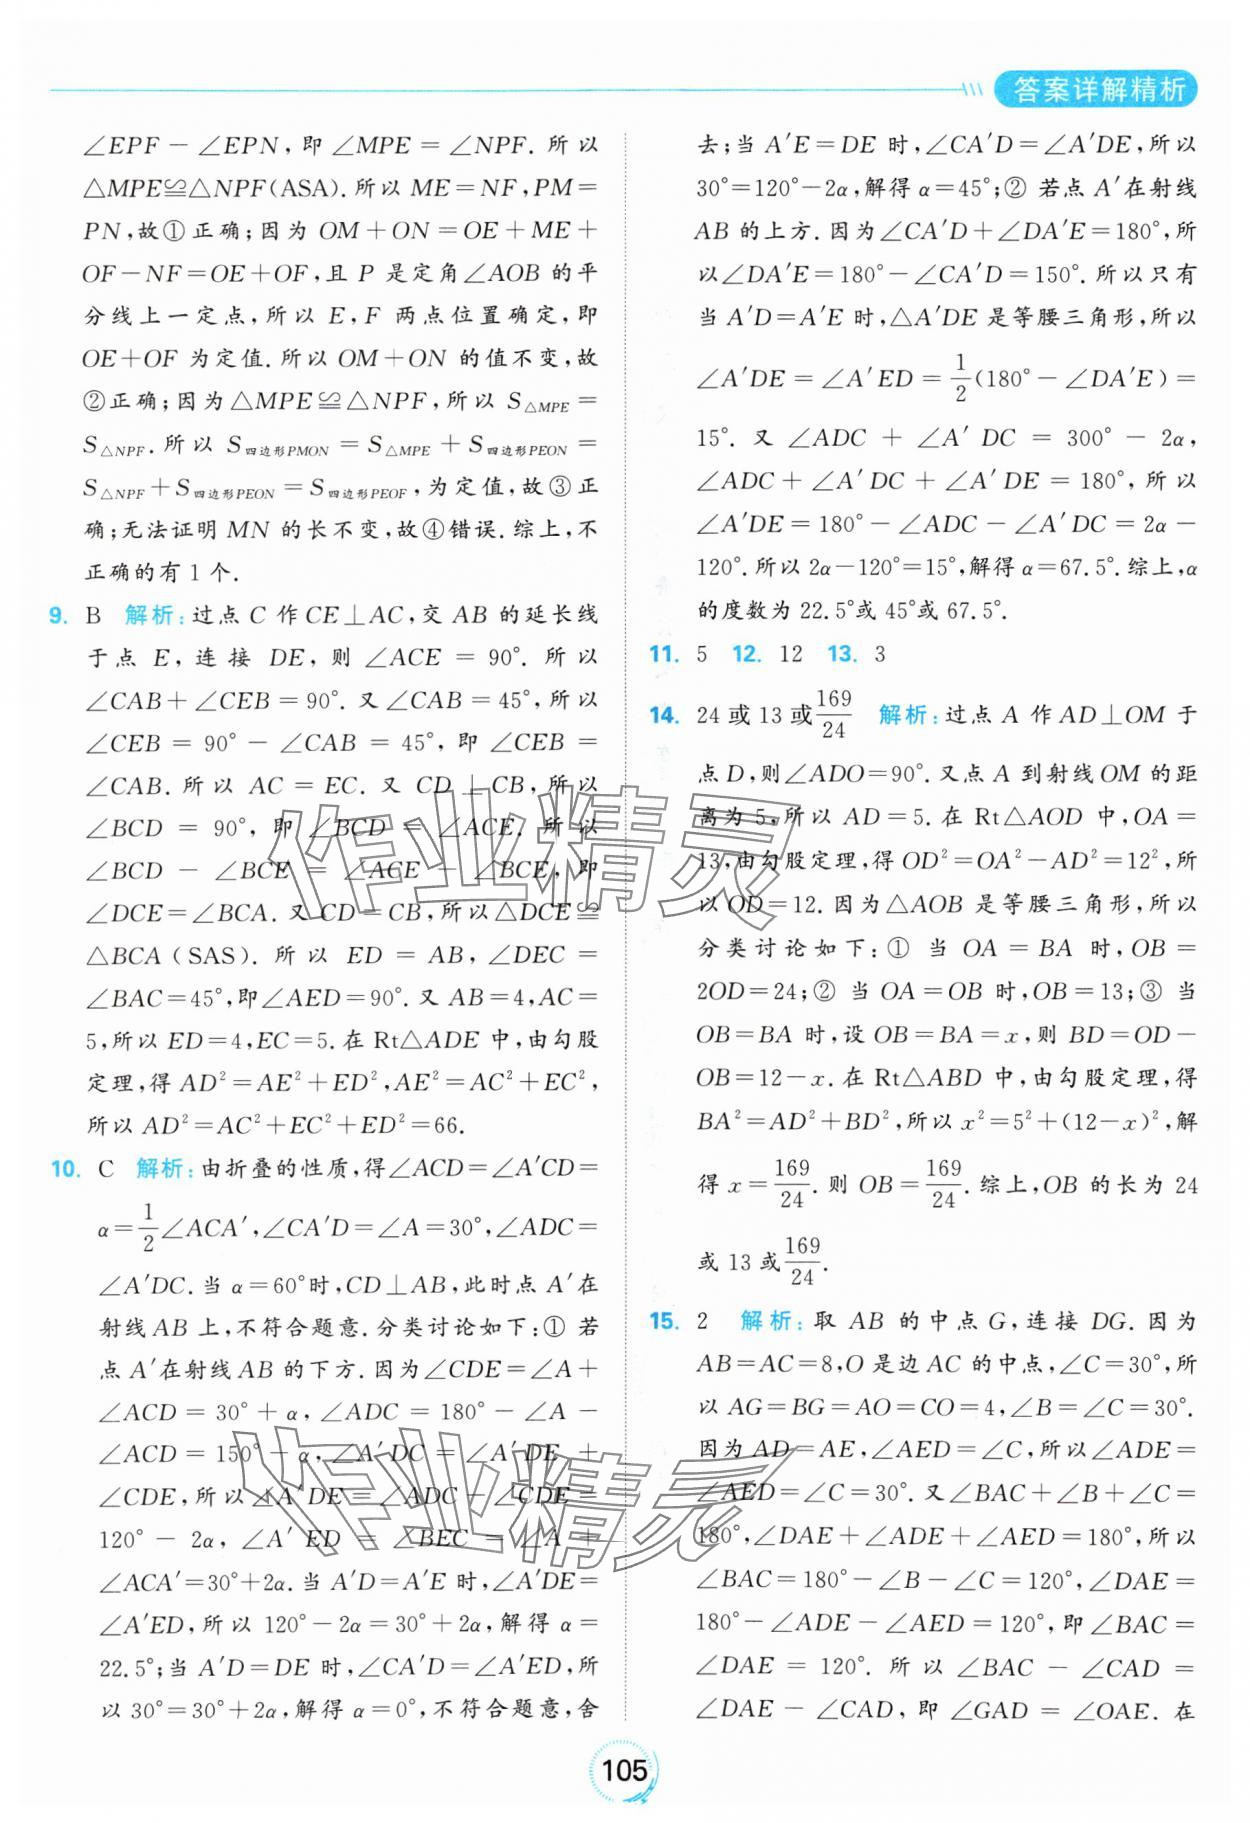 答案详解精析
∠EPF－∠EPN，即∠MPE＝∠NPF. 所以
△MPE≌△NPF(ASA). 所以 ME＝NF，PM＝
PN，故①正确；因为 OM＋ON＝OE＋ME＋
OF－NF＝OE＋OF，且 P 是定角∠AOB 的平
分线上一定点，所以 E，F 两点位置确定，即
OE＋OF 为定值. 所以 OM＋ON 的值不变，故
②正确；因为△MPE≌△NPF，所以 S△MPE＝
S△NPF. 所以 S四边形PMON＝S△MPE＋S四边形PEON＝
S△NPF＋S四边形PEON＝S四边形PEOF，为定值，故③正
确；无法证明 MN 的长不变，故④错误. 综上，不
正确的有 1 个.
9. B 解析：过点 C 作 CE⊥AC，交 AB 的延长线
于点 E，连接 DE，则∠ACE＝90°. 所以
∠CAB＋∠CEB＝90°. 又∠CAB＝45°，所以
∠CEB＝90°－∠CAB＝45°，即∠CEB＝
∠CAB. 所以 AC＝EC. 又 CD⊥CB，所以
∠BCD＝90°，即∠BCD＝∠ACE. 所以
∠BCD－∠BCE＝∠ACE－∠BCE，即
∠DCE＝∠BCA. 又 CD＝CB，所以△DCE≌
△BCA（SAS）. 所以 ED＝AB，∠DEC＝
∠BAC＝45°，即∠AED＝90°. 又 AB＝4，AC＝
5，所以 ED＝4，EC＝5. 在 Rt△ADE 中，由勾股
定理，得 AD²＝AE²＋ED²，AE²＝AC²＋EC²，
所以 AD²＝AC²＋EC²＋ED²＝66.
10. C 解析：由折叠的性质，得∠ACD＝∠A′CD＝
α＝1/2∠ACA′，∠CA′D＝∠A＝30°，∠ADC＝
∠A′DC. 当 α＝60°时，CD⊥AB，此时点 A′在
射线 AB 上，不符合题意. 分类讨论如下：① 若
点 A′在射线 AB 的下方. 因为∠CDE＝∠A＋
∠ACD＝30°＋α，∠ADC＝180°－∠A－
∠ACD＝150°－α，∠A′DC＝∠A′DE＋
∠CDE，所以∠A′DE＝∠ADC－∠CDE＝
120°－2α，∠A′ED＝∠BEC＝∠A＋
∠ACA′＝30°＋2α. 当 A′D＝A′E 时，∠A′DE＝
∠A′ED，所以 120°－2α＝30°＋2α，解得 α＝
22.5°；当 A′D＝DE 时，∠CA′D＝∠A′ED，所
以 30°＝30°＋2α，解得 α＝0°，不符合题意，舍
去；当 A′E＝DE 时，∠CA′D＝∠A′DE，所以
30°＝120°－2α，解得 α＝45°；② 若点 A′在射线
AB 的上方. 因为∠CA′D＋∠DA′E＝180°，所
以∠DA′E＝180°－∠CA′D＝150°. 所以只有
当 A′D＝A′E 时，△A′DE 是等腰三角形，所以
∠A′DE＝∠A′ED＝1/2(180°－∠DA′E)＝
15°. 又∠ADC＋∠A′DC＝300°－2α，
∠ADC＋∠A′DC＋∠A′DE＝180°，所以
∠A′DE＝180°－∠ADC－∠A′DC＝2α－
120°. 所以 2α－120°＝15°，解得 α＝67.5°. 综上，α
的度数为 22.5°或 45°或 67.5°.
11. 5 12. 12 13. 3
14. 24 或 13 或 169/24 解析：过点 A 作 AD⊥OM 于
点 D，则∠ADO＝90°. 又点 A 到射线 OM 的距
离为 5，所以 AD＝5. 在 Rt△AOD 中，OA＝
13，由勾股定理，得 OD²＝OA²－AD²＝12²，所
以 OD＝12. 因为△AOB 是等腰三角形，所以
分类讨论如下：① 当 OA＝BA 时，OB＝
2OD＝24；② 当 OA＝OB 时，OB＝13；③ 当
OB＝BA 时，设 OB＝BA＝x，则 BD＝OD－
OB＝12－x. 在 Rt△ABD 中，由勾股定理，得
BA²＝AD²＋BD²，所以 x²＝5²＋(12－x)²，解
得 x＝169/24. 则 OB＝169/24. 综上，OB 的长为 24
或 13 或 169/24.
15. 2 解析：取 AB 的中点 G，连接 DG. 因为
AB＝AC＝8，O 是边 AC 的中点，∠C＝30°，所
以 AG＝BG＝AO＝CO＝4，∠B＝∠C＝30°.
因为 AD＝AE，∠AED＝∠C，所以∠ADE＝
∠AED＝∠C＝30°. 又∠BAC＋∠B＋∠C＝
180°，∠DAE＋∠ADE＋∠AED＝180°，所以
∠BAC＝180°－∠B－∠C＝120°，∠DAE＝
180°－∠ADE－∠AED＝120°，即∠BAC＝
∠DAE＝120°. 所以∠BAC－∠CAD＝
∠DAE－∠CAD，即∠GAD＝∠OAE. 在
105
作业精灵
作业精灵